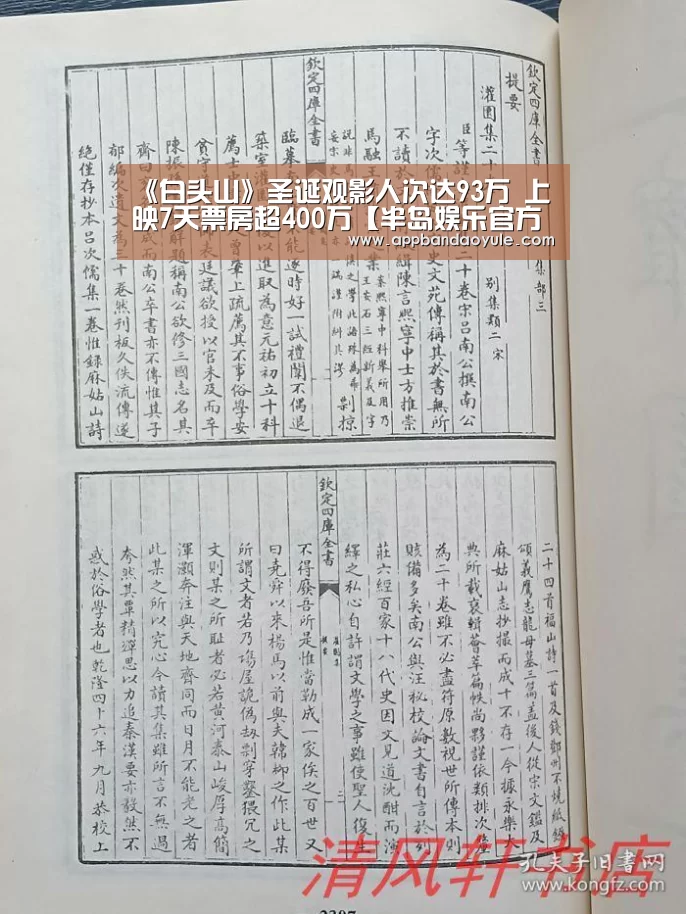 欽定四庫全書
提要
灌園集二十
集部三
別集類二 宋
臣等謹
二十卷宋呂南公撰南公
字次儒
史文苑傳稱其於書無所
不讀於
緝陳言熙寧中士方推崇
馬融王
業
剽掠
臨摹
不能逐時好一試禮闈不偶退
築室灌園
以進取為意元祐初立十科
薦士
曾肇上疏薦其不事俗學安
貧守
表廷議欲授以官未及而卒
陳振孫
解題稱南公欲修三國志名其
齋曰
成而南公卒書亦不傳惟其子
郁編次遺文為三十卷然刊板久佚流傳遂
絶僅存抄本呂次儒集一卷惟録麻姑山詩
欽定四庫全書
《白头山》圣诞观影人次达93万 上
映7天票房超400万【半岛娱乐官方
www.appbandaoyule.com
二十四首福山詩一首及錢鄧州不燒紙錢
頌義鷹志龍母墓三篇蓋後人從宋文鑑及
麻姑山志抄撮而成十不存一今據永樂大
典所載裒輯薈萃篇帙尚夥謹依類排次釐
為二十卷雖不必盡符原數視世所傳本則
賅備多矣南公與汪秘校論文書自言於列
莊六經百家十八代史因文見道沈酣而演
繹之私心自許謂文學之事雖使聖人復生
欽定四庫全書
灌園集
提要
二
不得廢吾所是惟當勒成一家俟之百世又
曰堯舜以來楊馬以前與夫韓柳之作此某
所謂文者若乃場屋詭偽劫剽穿鑿猥冗之
文則某之所恥者必若黃河泰山峻厚高簡
渾灝奔注與天地齊同而日月不能老之者
此某之所以究心今讀其集雖所言不無過
夸然其覃精殫思以力追秦漢要亦毅然不
惑於俗學者也乾隆四十六年九月恭校上
清风轩书店
孔夫子旧书网
www.kongfz.com
2297